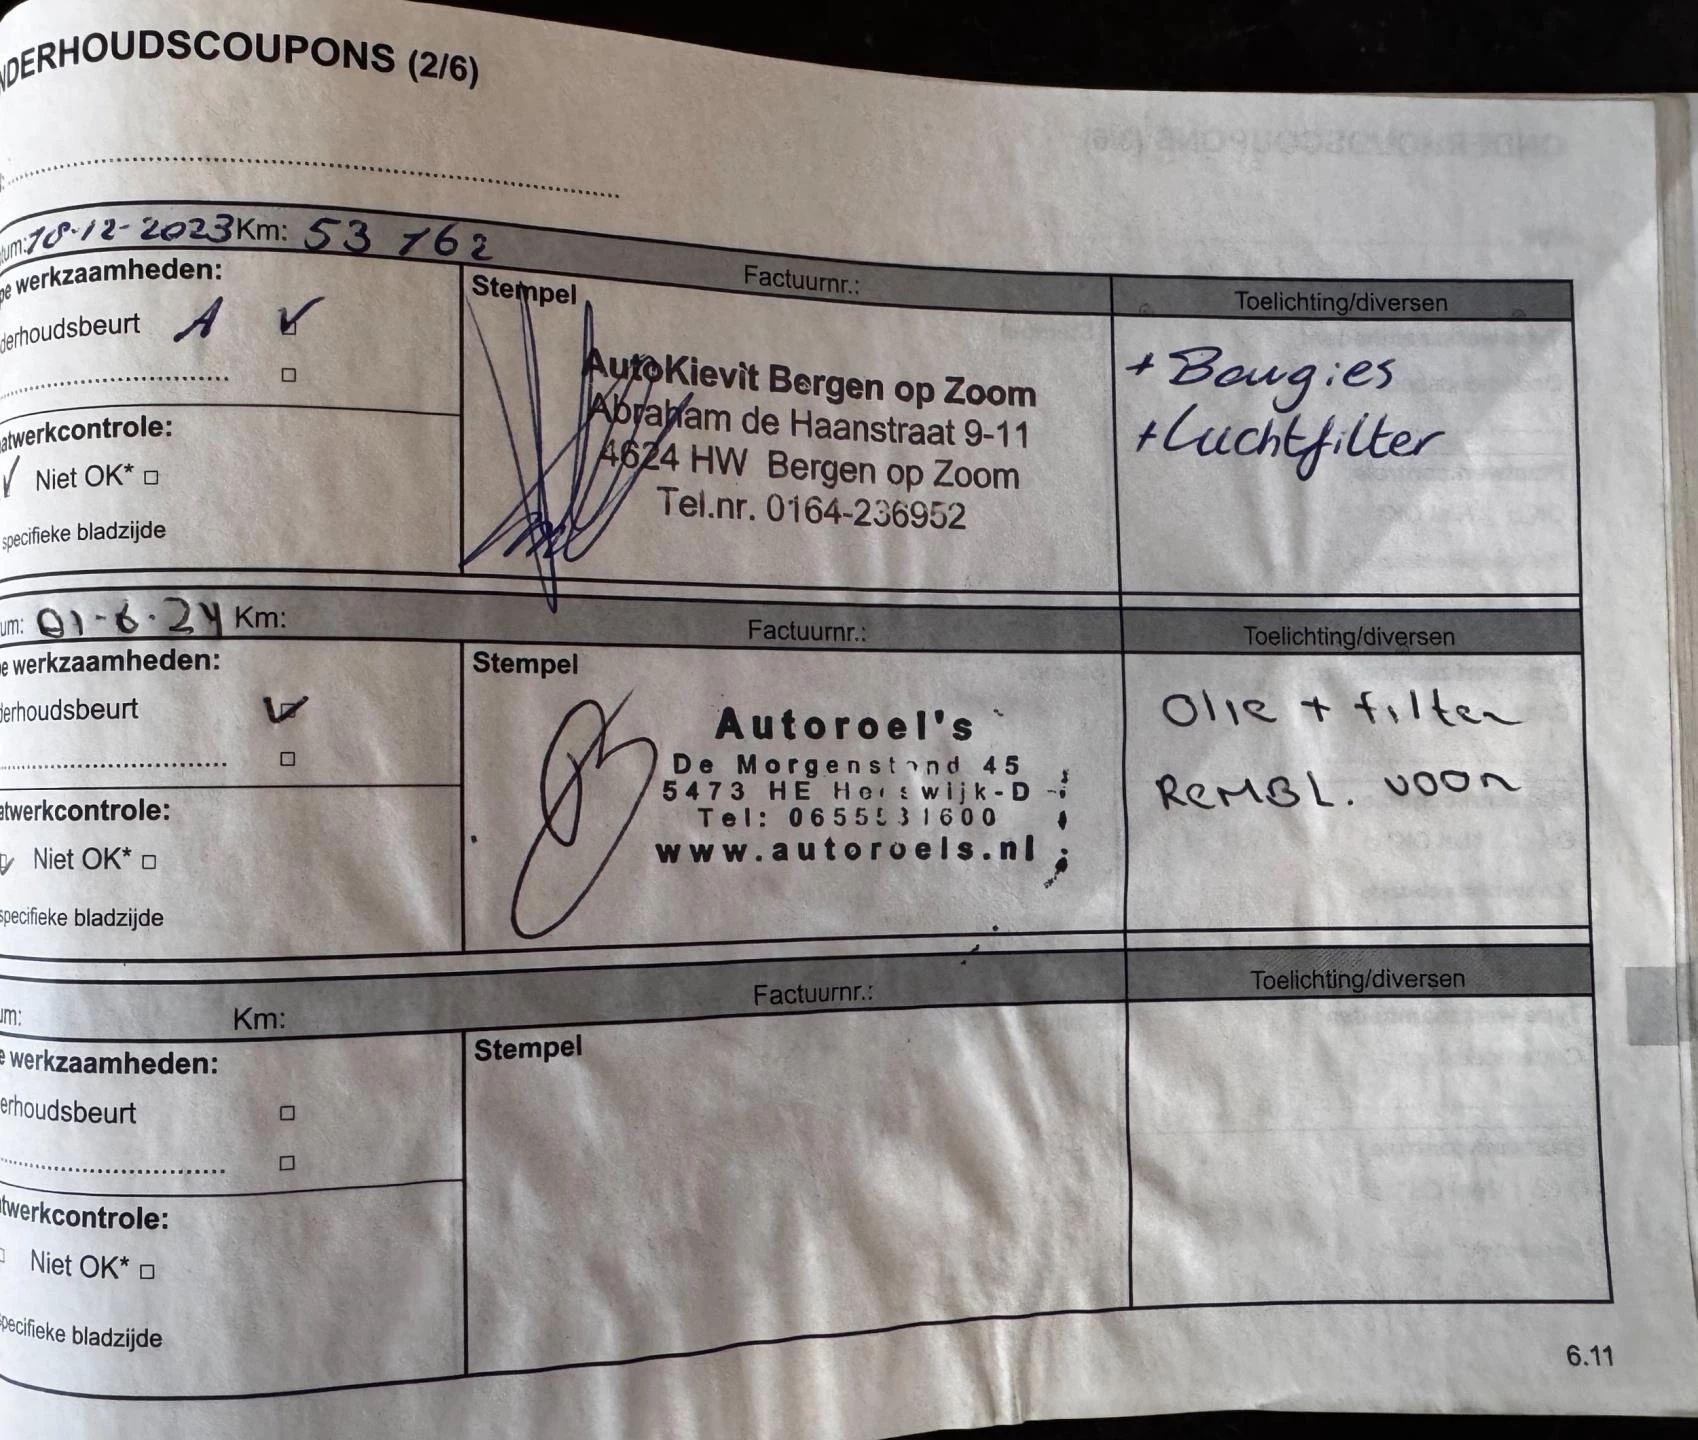 NDERHOUDSCOUPONS (2/6)
tum: 18-12-2023 Km: 53 162
Factuurnr.:
Toelichting/diversen
pe werkzaamheden:
derhoudsbeurt A
Stempel
AutoKievit Bergen op Zoom
Abraham de Haanstraat 9-11
4624 HW Bergen op Zoom
Tel.nr. 0164-236952
+ Bougies
+ Luchtfilter
atwerkcontrole:
Niet OK*
specifieke bladzijde
um: 01-6-24 Km:
Factuurnr.:
Toelichting/diversen
e werkzaamheden:
derhoudsbeurt
Stempel
Autoroel's
De Morgenstond 45
5473 HE Heeswijk-D
Tel: 0655531600
www.autoroels.nl
Olie + filter
REMBL. VOOR
atwerkcontrole:
Niet OK*
specifieke bladzijde
um: Km:
Factuurnr.:
Toelichting/diversen
e werkzaamheden:
erhoudsbeurt
Stempel
twerkcontrole:
Niet OK*
specifieke bladzijde
6.11